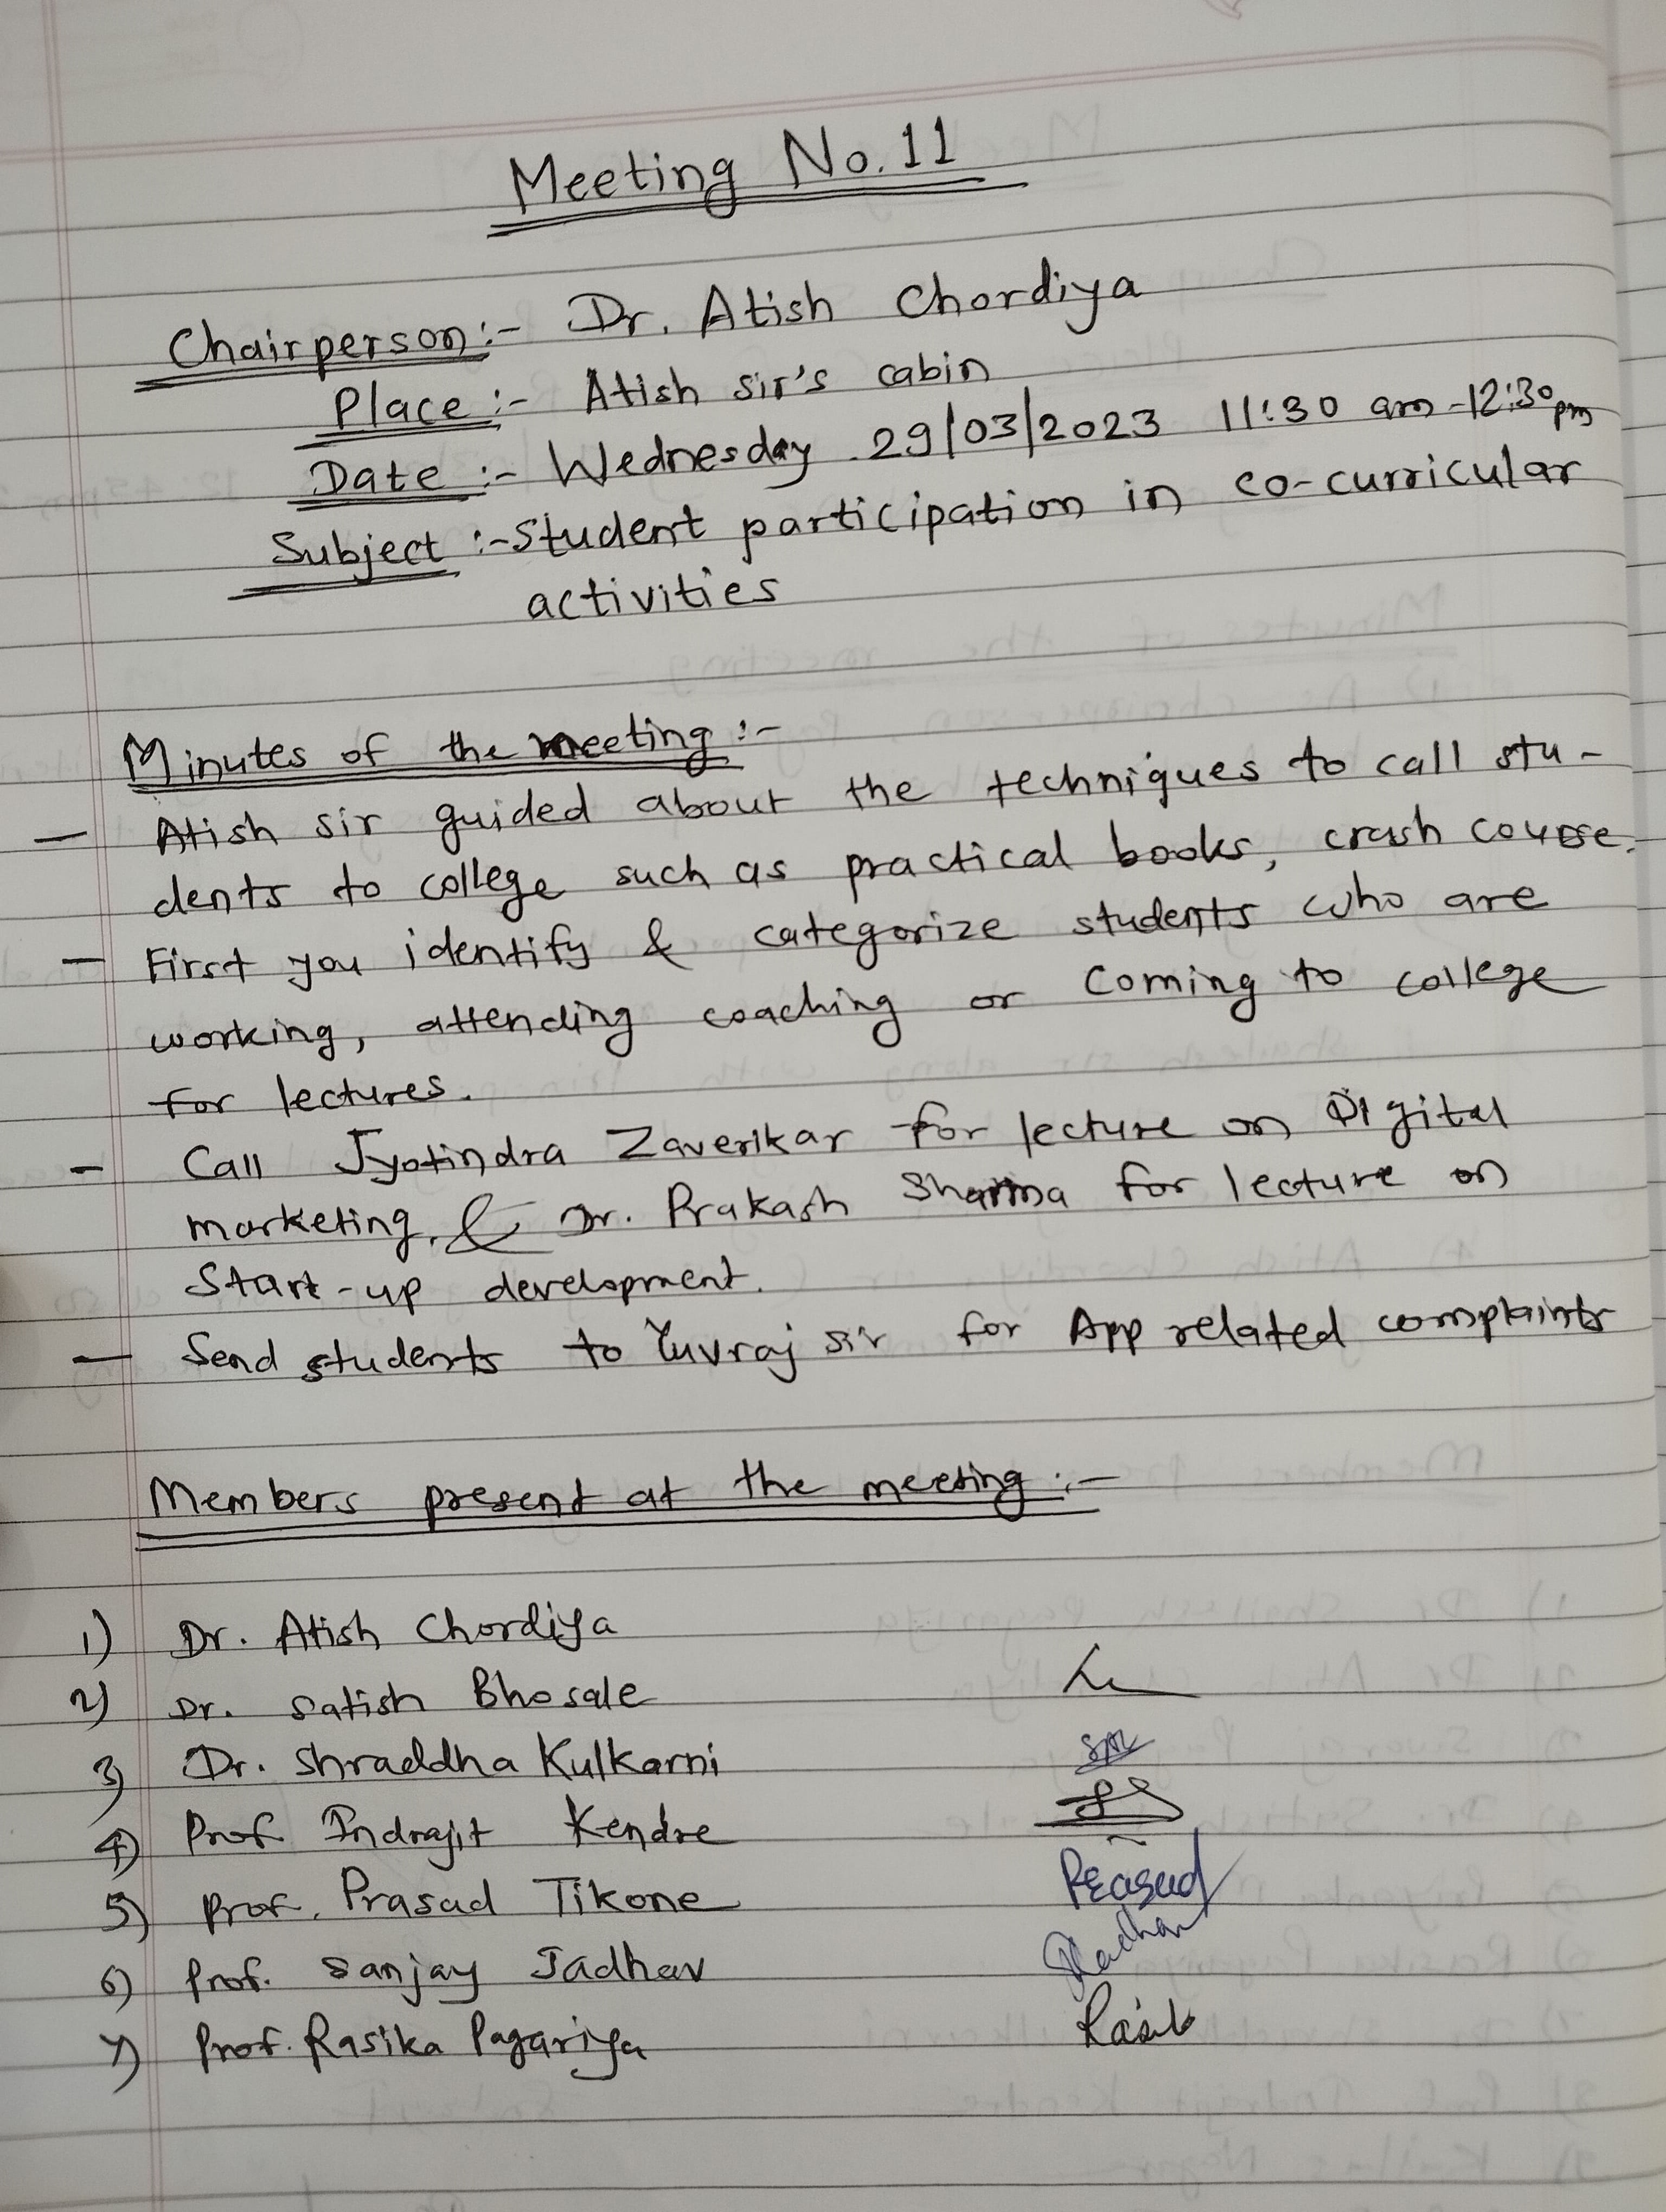 Meeting No. 11
Chairperson :- Dr. Atish Chordiya
Place :- Atish sir's cabin
Date :- Wednesday 29/03/2023 11:30 am - 12:30 pm
Subject :- Student participation in co-curricular
activities
Minutes of the meeting :-
— Atish sir guided about the techniques to call stu-
dents to college such as practical books, crash course.
— First you identify & categorize students who are
working, attending coaching or coming to college
for lectures.
- Call Jyotindra Zaverikar for lecture on Digital
marketing, & Dr. Prakash Sharma for lecture on
Start-up development.
— Send students to Yuvraj sir for App related complaints
Members present at the meeting :-
1) Dr. Atish Chordiya
2) Dr. Satish Bhosale
3) Dr. Shraddha Kulkarni
4) Prof. Indrajit Kendre
5) Prof. Prasad Tikone Prasad
6) Prof. Sanjay Jadhav
7) Prof. Rasika Pagariya